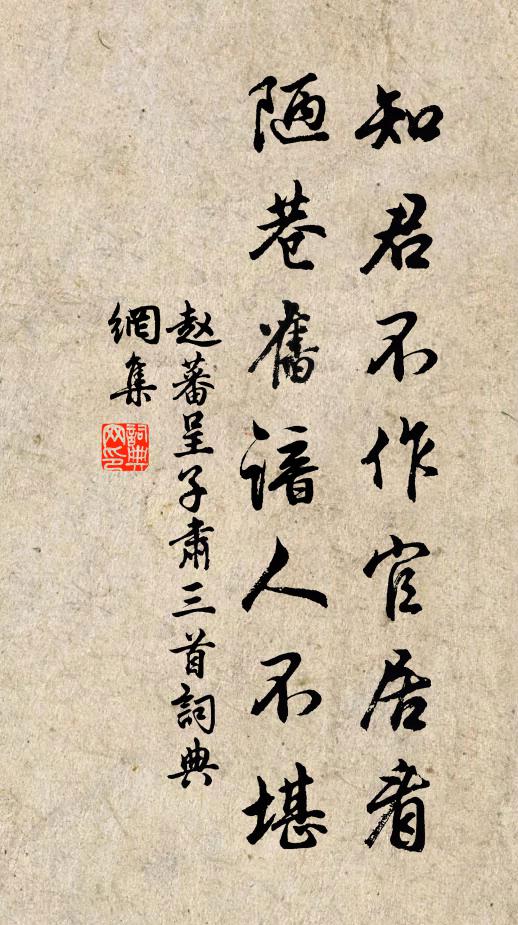 知君不作官居看
陋巷舊諳人不堪
赵蕃呈子肅三首詞典
網集
詞典
网印